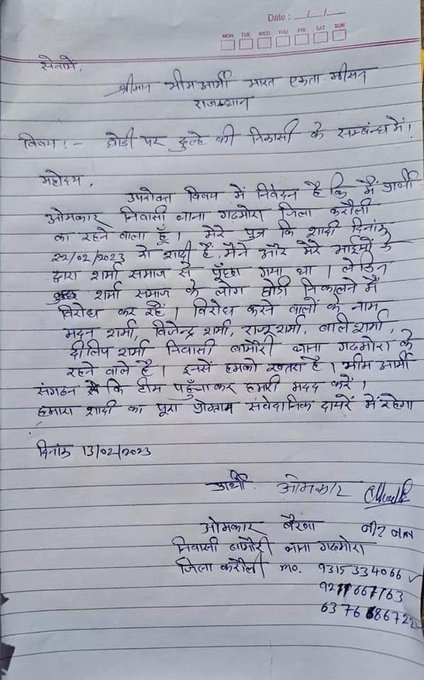 Date : __/__/__
MON TUE WED THU FRI SAT SUN
सेवामे,
श्रीमान भीम आर्मी भारत एकता मीसन
राजस्थान
विषय :- घोडी पर दुल्हे की निकासी के सम्बंध में।
महोदय,
उपरोक्त विषय में निवेदन है कि मैं प्रार्थी
ओमकार निवासी थाना गढमोरा जिला करौली
का रहने वाला हूँ। मेरे पुत्र कि शादी दिनांक
22/02/2023 को शादी है, मैंने और मेरे भाईयों के
द्वारा शर्मा समाज से पुँछा गया था। लेकिन
शर्मा समाज के लोग घोडी निकालने में
विरोध कर रहे। विरोध करने वालों के नाम
मदन शर्मा, विजेन्द्र शर्मा, राजू शर्मा, बाली शर्मा,
दीलिप शर्मा निवासी बामौरी थाना गढमोरा के
रहने वाले है। इनसे हमको खतरा है। भीम आर्मी
संगठन से कि टीम पहुँचाकर हमारी मदद करें।
हमारा शादी का पूरा प्रोग्राम संवेदानिक दायरें में रहेगा
दिनांक 13/02/2023
प्रार्थी ओमकार
ओमकार बैरवा
निवासी बामौरी थाना गढमोरा
जिला करौली mo. 9315334066
63766